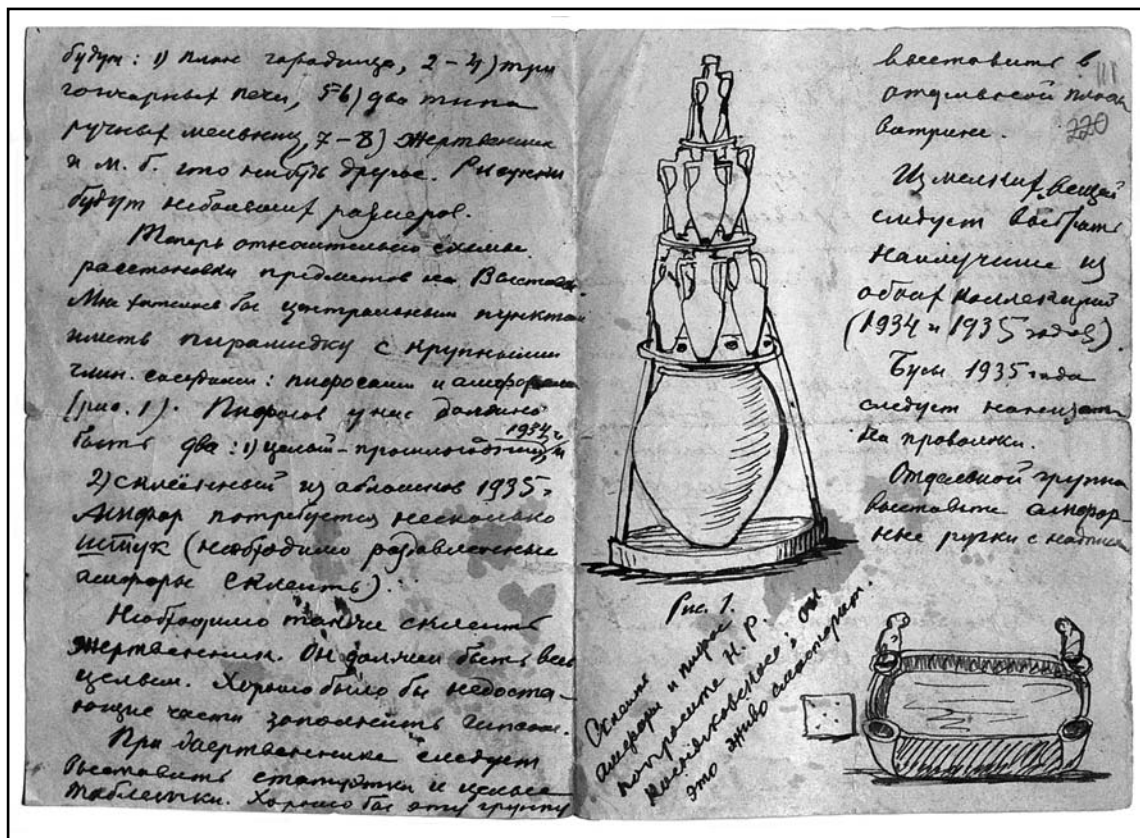 будут: 1) план городища, 2–4) три
гончарных печи, 5–6) два типа
ручных мельниц, 7–8) жертвенник
и м. б. что нибудь другое. Рисунки
будут небольших размеров.
Теперь относительно схемы
расстановки предметов на Выставке.
Мне хотелось бы центральным пунктом
иметь пирамидку с крупнейшими
глин. сосудами: пифосами и амфорами
(рис. 1). Пифосов у нас должно
быть два: 1) целый – прошлогодний 1934 г. и
2) склеенный из обломков 1935 г.
Амфор потребуется несколько
штук (необходимо раздавленные
амфоры склеить).
Необходимо также склеить
жертвенник. Он должен быть весь
целым. Хорошо было бы недоста-
ющие части заполнить гипсом.
При жертвеннике следует
выставить статуэтки и целые
таблетки. Хорошо бы эту группу
Рис. 1.
Склеить
амфоры и пифос
попросите Н. Р.
он
это живо смастерит.
выставить в
отдельной плоск
витрине.
220
Из мелких вещей
следует выбрать
наилучшие из
обоих коллекций
(1934 и 1935 годов).
Бусы 1935 года
следует нанизать
на проволоки.
Отдельной группой
выставьте амфор-
ные ручки с надписи